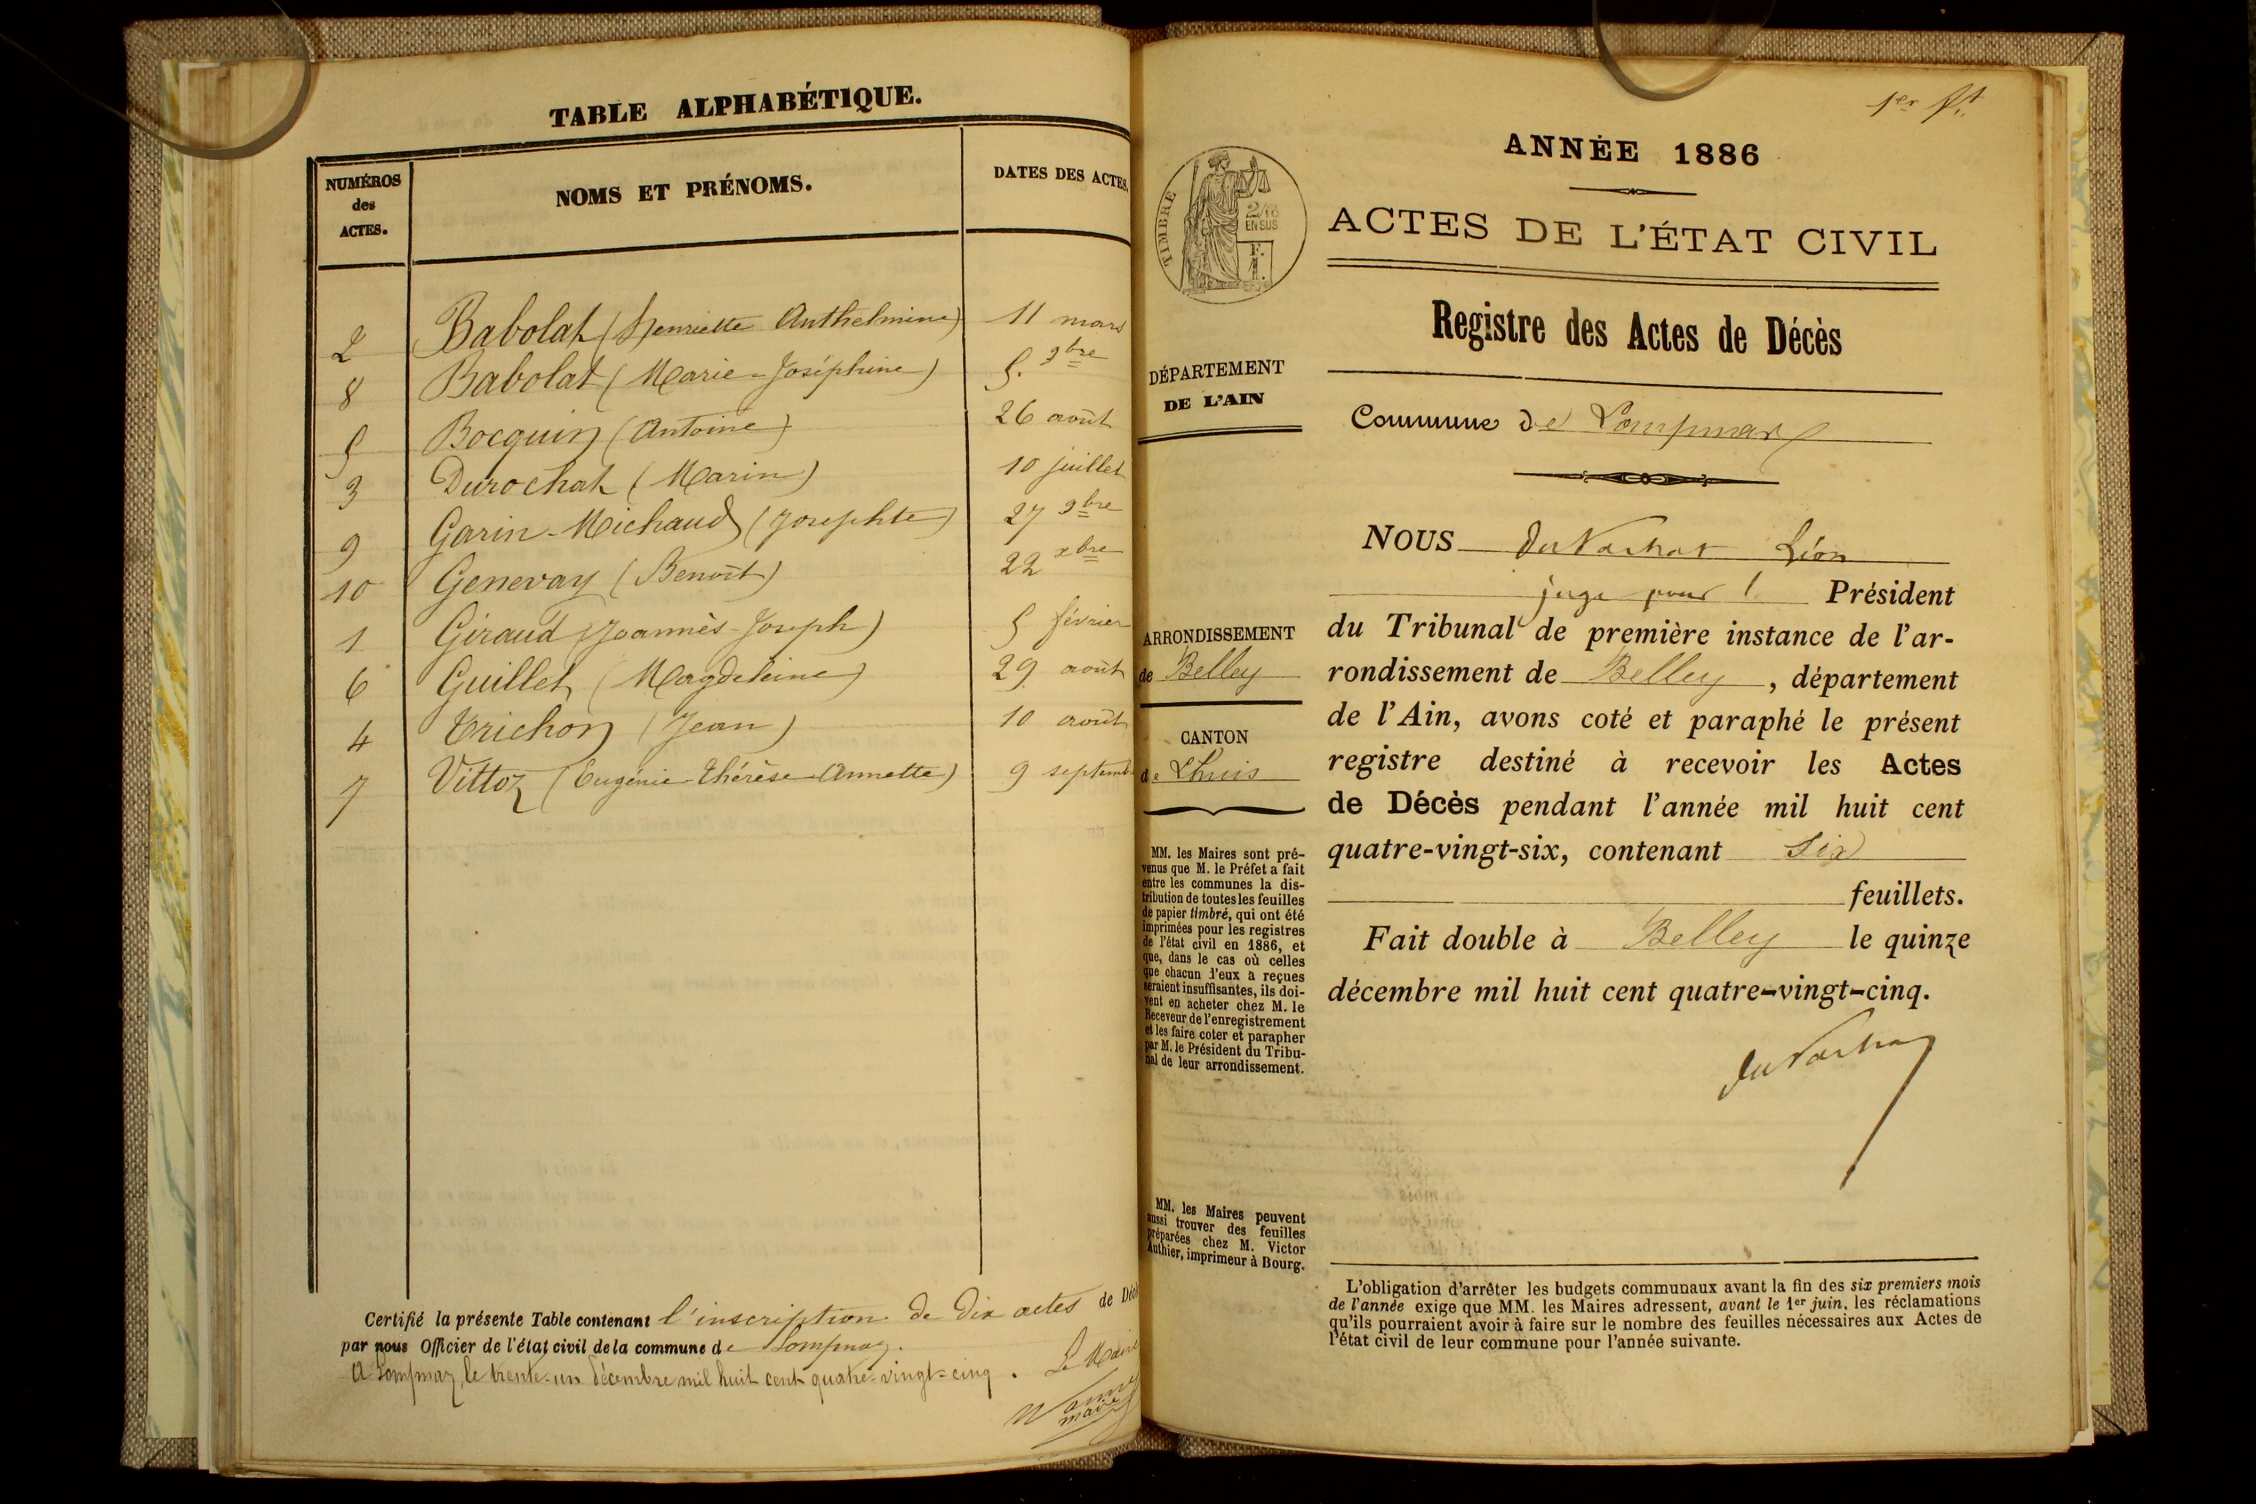 TABLE ALPHABÉTIQUE.
NUMÉROS des ACTES.
NOMS ET PRÉNOMS.
DATES DES ACTES.
2 Babolat (Henriette Anthelmine) 11 mars
8 Babolat (Marie-Joséphine) 5. 9bre
5 Bocquin (Antoine) 26 août
3 Durochat (Marin) 10 juillet
9 Garin-Michaud (Josephte) 27 9bre
10 Genevay (Benoît) 22 xbre
1 Giraud (Joannès-Joseph) 5 février
6 Guillet (Magdeleine) 29 août
4 Trichon (Jean) 10 août
7 Vittoz (Eugénie-Thérèse-Annette) 9 septemb
Certifié la présente Table contenant l'inscription de dix actes de Déc
par nous Officier de l'état civil de la commune de Lompnaz.
A Lompnaz, le trente-un décembre mil huit cent quatre-vingt-cinq. Le Maire
maire
1er ft
ANNÉE 1886
ACTES DE L'ÉTAT CIVIL
Registre des Actes de Décès
TIMBRE
2/10
EN SUS
F.
1.
DÉPARTEMENT
DE L'AIN
Commune de Lompnaz
NOUS du Nachat Léon
juge pour l Président
du Tribunal de première instance de l'ar-
rondissement de Belley, département
de l'Ain, avons coté et paraphé le présent
registre destiné à recevoir les Actes
de Décès pendant l'année mil huit cent
quatre-vingt-six, contenant six
feuillets.
Fait double à Belley le quinze
décembre mil huit cent quatre-vingt-cinq.
du Nachat
ARRONDISSEMENT
de Belley
CANTON
de Lhuis
MM. les Maires sont pré-
venus que M. le Préfet a fait
entre les communes la dis-
tribution de toutes les feuilles
de papier timbré, qui ont été
imprimées pour les registres
de l'état civil en 1886, et
que, dans le cas où celles
que chacun d'eux a reçues
seraient insuffisantes, ils doi-
vent en acheter chez M. le
Receveur de l'enregistrement
et les faire coter et parapher
par M. le Président du Tribu-
nal de leur arrondissement.
MM. les Maires peuvent
aussi trouver des feuilles
préparées chez M. Victor
Authier, imprimeur à Bourg.
L'obligation d'arrêter les budgets communaux avant la fin des six premiers mois
de l'année exige que MM. les Maires adressent, avant le 1er juin, les réclamations
qu'ils pourraient avoir à faire sur le nombre des feuilles nécessaires aux Actes de
l'état civil de leur commune pour l'année suivante.